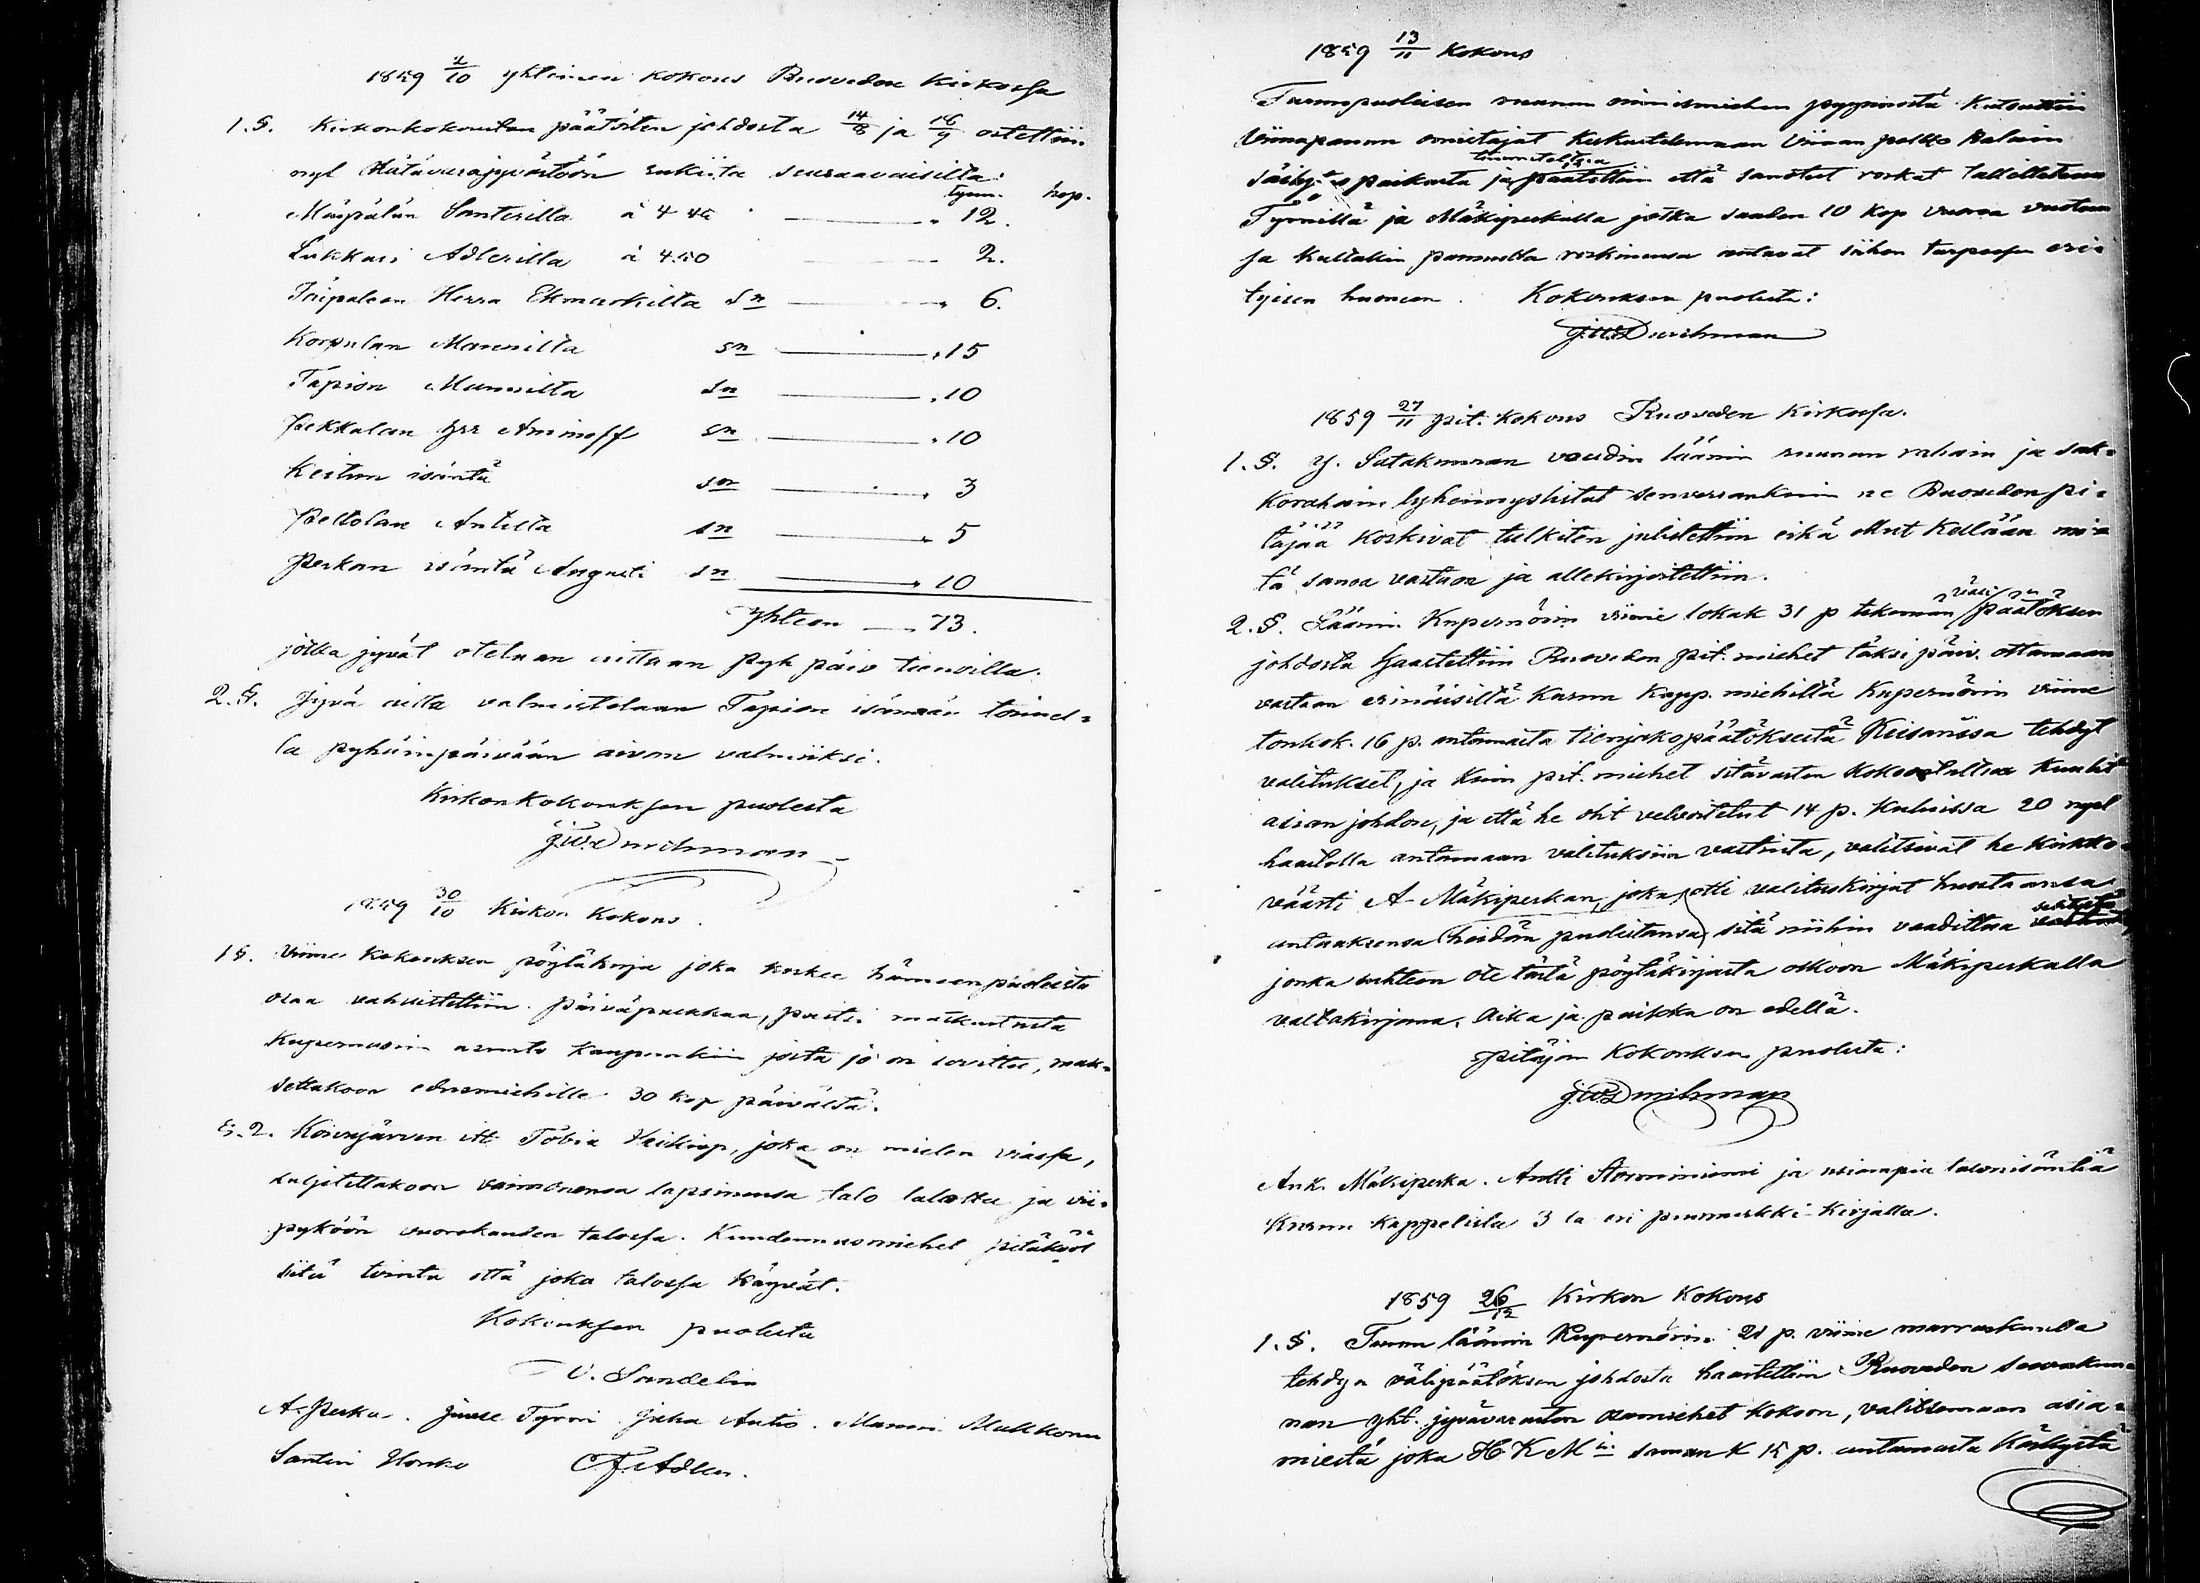 1859 2/10 yhteinen kokous Ruoveden Kirkossa
1.§. Kirkonkokousten päätösten johdosta 14/8 ja 18/9 ostettiin
nyt Hätävarajyvästöön rukiita seuraavaisilta:
tynn. hop.
Mäypälän Santerilla à 4 40 " 12.
Lukkari Adlerilla à 4.50 2.
Pajulan Herra Ekmarkilta sn " 6.
Korpulan Maunilta sn " 15
Tapion Maunilta sn " 10
Pekkalan hrr Aminoff sn " 10
Keitun isäntä sn " 3
Peltolan Antilta sn " 5
Perkon isäntä Augusti sn " 10
Yhteen 73.
jotka jyvät otetaan aittaan Pyh päiv tienoilla.
2.§. Jyvä aitta valmistetaan Tapion isännän toimel-
la pyhäinpäivään aivan valmiiksi.
Kirkonkokouksen puolesta
J.W. Durchman
1859 30/10 Kirkon Kokous.
1§. Viime kokouksen pöytäkirja joka koskee hämeenpuoleista
osaa vahvistettiin. Päiväpalkkaa, paitsi matkustusta
Kupernusin asunto kaupunkiin josta jo on sovittu, mak-
settakoon edusmiehille 30 kop päivältä.
§.2. Koverojärven itt Tobia Heikinp, joka on mielen viassa,
kuljetettakoon vaimonensa lapsinensa talo talolta ja vii-
pyköön vuorokauden talossa. Kuudennusmiehet pitäkööt
siitä vointa että joka talossa käyvät.
Kokouksen puolesta
C. Sandelin
A. Perka. Juuse Tyrni Juha Autio. Manni Mukkonen
Santeri Honko C.F. Adler.
1859 13/11 Kokous
Turunpuoleisen ruunun nimismiehen pyynnöstä kutsuttiin
Viinapannu omistajat keskustelemaan Viinan poltto kalain
säily-s paikasta ja päätettiin että sanotut roskat talletetaan
tuumiteltua
Tyrnillä ja Mäkiperkulla jotka saaden 10 kop vuosi vuotensa
ja kultakin pannulta roskinensa antavat siihen tarpeesen eri-
tyisen huoneen. Kokouksen puolesta:
J.W. Durchman
1859 27/11 pit. kokous Ruoveden kirkossa.
1.§. Y. Satakunnan voudin läänin ruunun rahain ja sak-
korahain lyhennyslistat senverrankuin ne Ruoveden pi-
täjää koskivat tulkiten julistettiin eikä ollut kellään mi-
tä sanoa vastaan ja allekirjoitettiin.
2.§. Läänin Kupernörin viime lokak 31 p tekemän väli/päätöksen
johdosta haastettiin Ruoveden pit. miehet täksi päiv. ottamaan
vastaan erinäisiltä Kurun Kapp. miehiltä Kupernörin viime
toukok. 16 p. antamasta tienjakopäätöksestä Keisarissa tehdyt
valitukset, ja kuin pit. miehet sitävasten kokoontultua kuulit
asian johdon, ja että he olit velvoitetut 14 p. kuluissa 20 rupl
haastolla antamaan valituksiin vastinta, valitsivat he kirkko-
väärti A. Mäkiperkan, joka otti valituskirjat huostaansa
antaaksensa heidän puolestansa sitä niihin vaadittua selitystä
jonka suhteen ote tästä pöytäkirjasta olkoon Mäkiperkalla
valtakirjana. Aika ja paikka on edellä.
Pitäjän Kokouksen puolesta:
J.W. Durchman
Ank. Mäkiperka. Antti Storminiemi ja usiampia talonisäntiä
Kurun kappelista 3 la eri puumerkki-kirjalla.
1859 26/12 Kirkon Kokous
1.§. Turun läänin Kupernörin 21 p. viime marraskuulla
tehdyn välipäätöksen johdosta haastettiin Ruoveden seurakun-
nan yht. jyvävaraston osamiehet kokoon, valitsemaan asia-
miestä joka H K M in saman k 15 p. antamasta käskystä